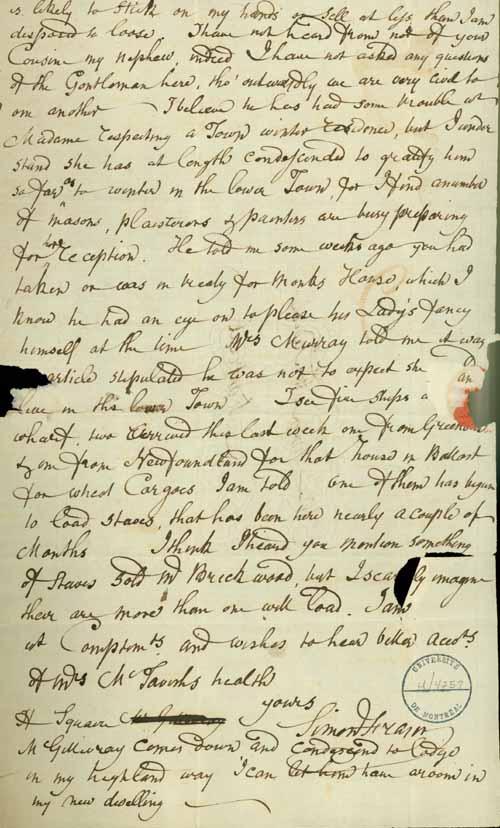 is likely to stick on my hands or sell at less than I am
disposed to loose. I have not heard from nor of your
Cousine my nephew, indeed I have not asked any questions
of the Gentleman here, tho' outwardly we are very civil to
one another I believe he has had some trouble wt
Madame respecting a Town winter residence, but I under
stand she has at length condescended to gratify him
so far as to winter in the lower Town, for I find a number
of masons, plaisterers & painters are busy preparing
for her reception. He told me some weeks ago you had
taken or was in treaty for Monks House which I
know he had an eye on to please his Lady's fancy
himself at the time Mrs Murray told me it was
article stipulated he was not to expect she
live in this lower Town I see five ships a
wharf, two arrived this last week one from Greenock
& one from Newfoundland for that house in Ballast
for wheat Cargoes I am told one of them has begun
to load staves, that has been here nearly a couple of
Months I think I heard you mention something
of Staves sold Mr Brickwood, but I scarcely imagine
there are more than one will load. I am
wt Complimts and wishes to hear better accots
of Mrs McTavishs health
yours
Simon Fraser
If Squire
McGillivray comes down and condescend to lodge
in my highland way I can let him have a room in
my new dwelling
UNIVERSITÉ
U/4257
DE MONTRÉAL